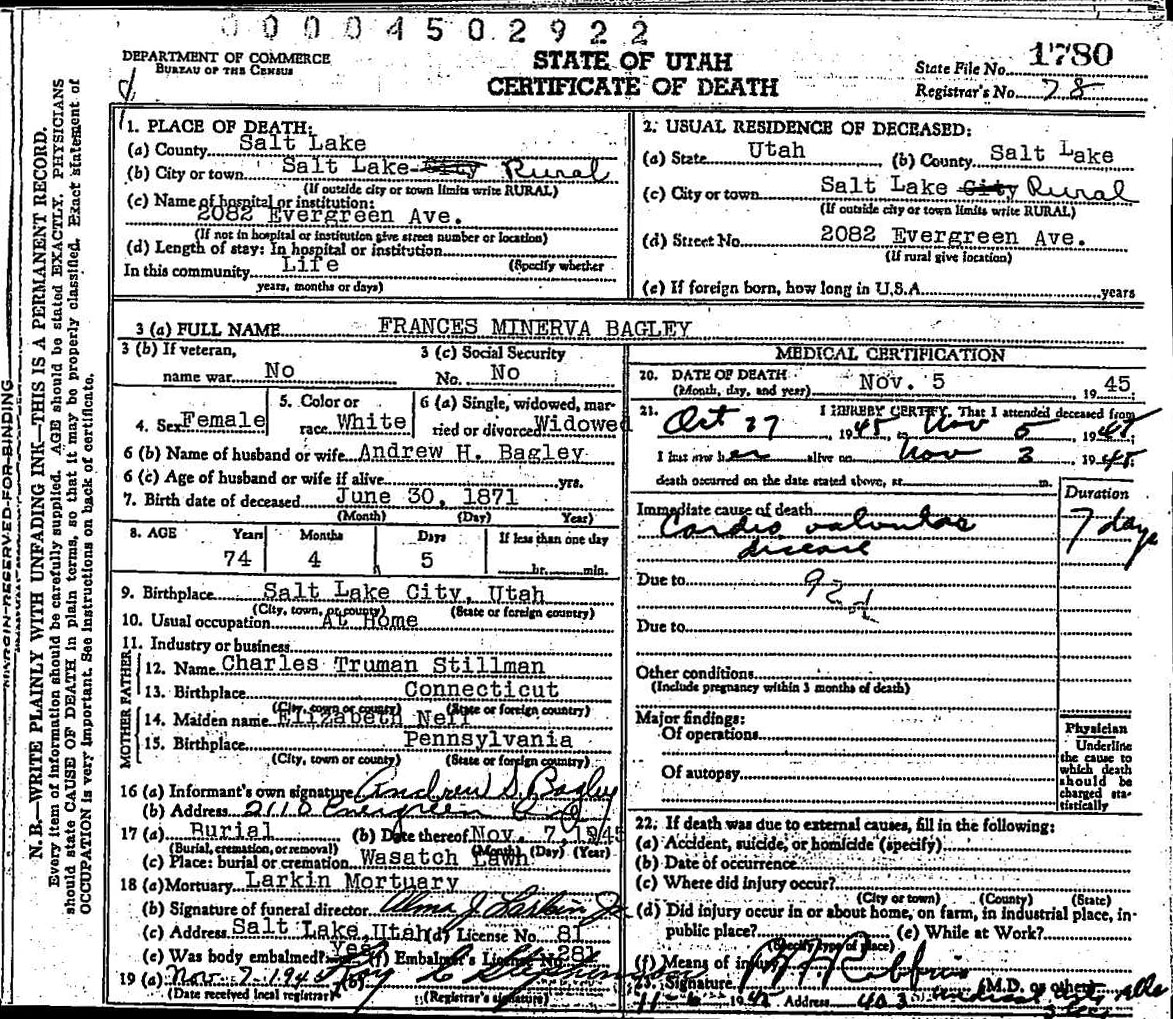 00004502922
DEPARTMENT OF COMMERCE
BUREAU OF THE CENSUS
STATE OF UTAH
CERTIFICATE OF DEATH
State File No. 1780
Registrar's No. 78
MARGIN RESERVED FOR BINDING
N. B.—WRITE PLAINLY WITH UNFADING INK—THIS IS A PERMANENT RECORD.
Every item of information should be carefully supplied. AGE should be stated EXACTLY. PHYSICIANS
should state CAUSE OF DEATH in plain terms, so that it may be properly classified. Exact statement of
OCCUPATION is very important. See instructions on back of certificate.
1. PLACE OF DEATH:
(a) County Salt Lake
(b) City or town Salt Lake City Rural
(If outside city or town limits write RURAL)
(c) Name of hospital or institution:
2082 Evergreen Ave.
(If not in hospital or institution give street number or location)
(d) Length of stay: In hospital or institution
In this community Life (Specify whether
years, months or days)
2. USUAL RESIDENCE OF DECEASED:
(a) State Utah (b) County Salt Lake
(c) City or town Salt Lake City Rural
(If outside city or town limits write RURAL)
(d) Street No. 2082 Evergreen Ave.
(If rural give location)
(e) If foreign born, how long in U.S.A. years
3 (a) FULL NAME FRANCES MINERVA BAGLEY
3 (b) If veteran, 3 (c) Social Security
name war No No. No
4. Sex Female 5. Color or race White 6 (a) Single, widowed, married or divorced Widowed
6 (b) Name of husband or wife Andrew H. Bagley
6 (c) Age of husband or wife if alive yrs.
7. Birth date of deceased June 30, 1871
(Month) (Day) Year)
8. AGE Years Months Days If less than one day
74 4 5 hr. min.
9. Birthplace Salt Lake City, Utah
(City, town, or county) (State or foreign country)
10. Usual occupation At Home
11. Industry or business
FATHER
12. Name Charles Truman Stillman
13. Birthplace Connecticut
(City, town or county) (State or foreign country)
MOTHER
14. Maiden name Elizabeth Neff
15. Birthplace Pennsylvania
(City, town or county) (State or foreign country)
16 (a) Informant's own signature Andrew S. Bagley
(b) Address 2110 Evergreen
17 (a) Burial (b) Date thereof Nov. 7, 1945
(Burial, cremation, or removal) (Month) (Day) (Year)
(c) Place: burial or cremation Wasatch Lawn
18 (a) Mortuary Larkin Mortuary
(b) Signature of funeral director Alma J Larkin Jr
(c) Address Salt Lake, Utah (d) License No. 81
(e) Was body embalmed? yes (f) Embalmer's License No. 81
19 (a) Nov 7-1945 (b) Roy C Stephenson
(Date received local registrar) (Registrar's signature)
MEDICAL CERTIFICATION
20. DATE OF DEATH Nov. 5 1945
(Month, day, and year)
21. I HEREBY CERTIFY, That I attended deceased from
Oct 27, 1945, to Nov 5 1945
I last saw her alive on Nov 3 1945
death occurred on the date stated above, at m.
Duration
Immediate cause of death
Cardio valvular 7 days
disease
Due to 92d
Due to
Other conditions
(Include pregnancy within 3 months of death)
Major findings:
Of operations
Of autopsy
Physician
Underline
the cause to
which death
should be
charged sta-
tistically
22. If death was due to external causes, fill in the following:
(a) Accident, suicide, or homicide (specify)
(b) Date of occurrence
(c) Where did injury occur?
(City or town) (County) (State)
(d) Did injury occur in or about home, on farm, in industrial place, in-
public place? (e) While at Work?
(Specify type of place)
(f) Means of injury
23. Signature (M.D. or other)
11-6 1945 Address 403 Medical Arts Bldg